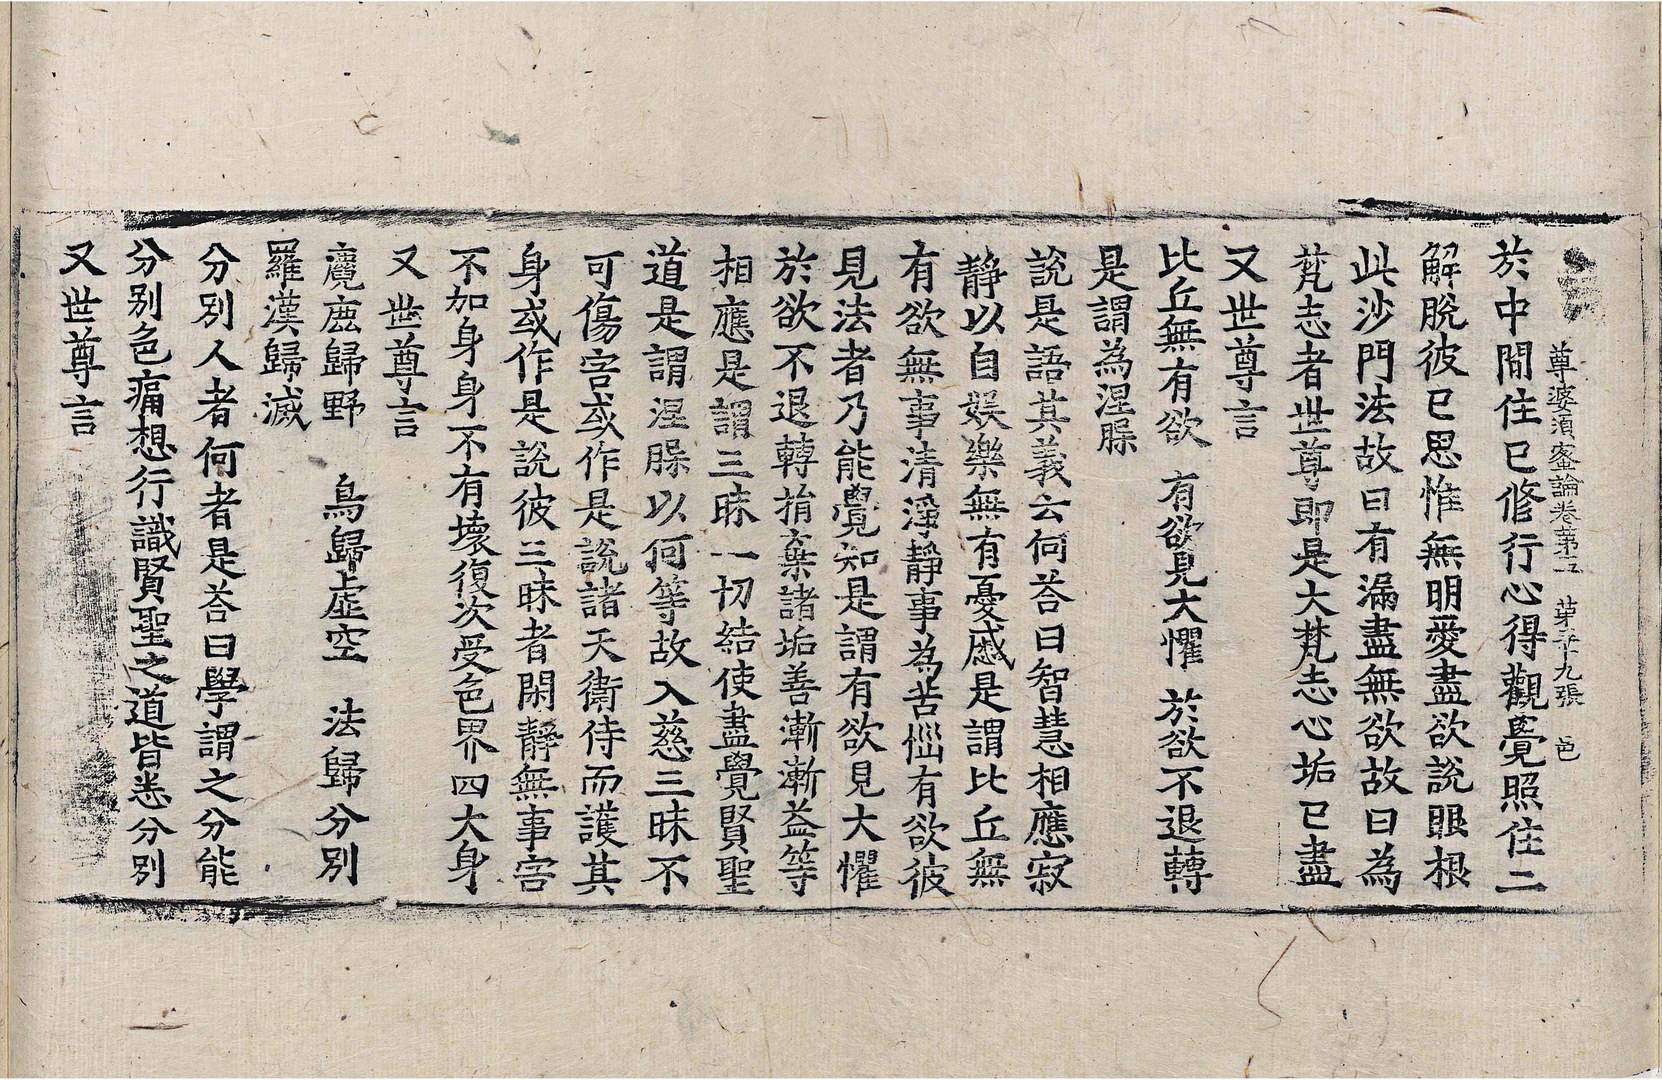 尊婆須蜜論卷第二 第二十九張 邑
於中間住已修行心得觀覺照住二
解脫彼已思惟無明愛盡欲說眼根
此沙門法故曰有漏盡無欲故曰為
梵志者世尊即是大梵志心垢已盡
又世尊言
比丘無有欲 有欲見大懼 於欲不退轉
是謂為涅槃
說是語其義云何荅曰智慧相應寂
靜以自娛樂無有憂慼是謂比丘無
有欲無事清淨靜事為苦惱有欲彼
見法者乃能覺知是謂有欲見大懼
於欲不退轉捐棄諸垢善漸漸益等
相應是謂三昧一切結使盡覺賢聖
道是謂涅槃以何等故入慈三昧不
可傷害或作是說諸天衛侍而護其
身或作是說彼三昧者閑靜無事害
不加身身不有壞復次受色界四大身
又世尊言
麀鹿歸野 鳥歸虛空 法歸分別
羅漢歸滅
分別人者何者是荅曰學謂之分能
分別色痛想行識賢聖之道皆悉分別
又世尊言